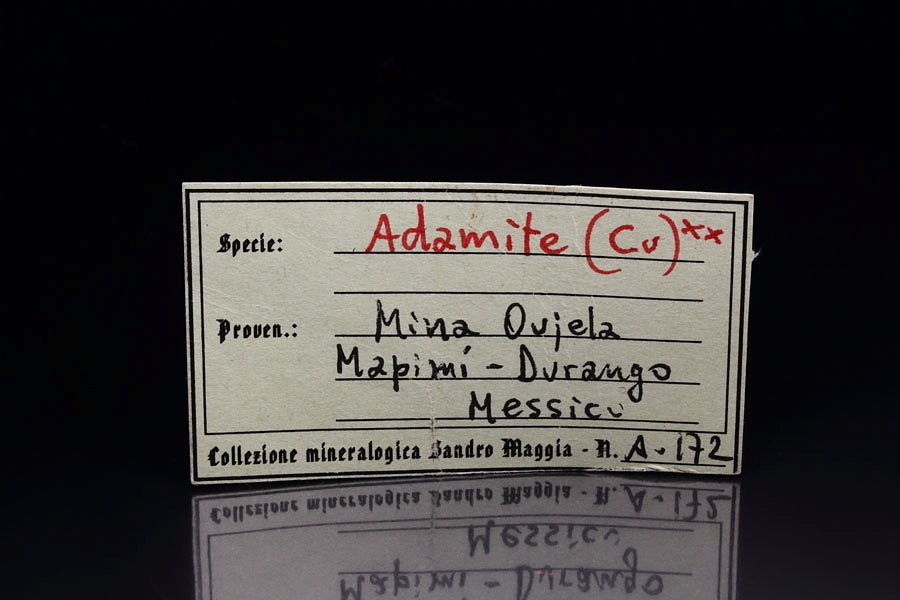 Specie: Adamite (Cu)xx
Proven.: Mina Oujela
Mapimí - Durango
Messico
Collezione mineralogica Sandro Maggia - N. A-172